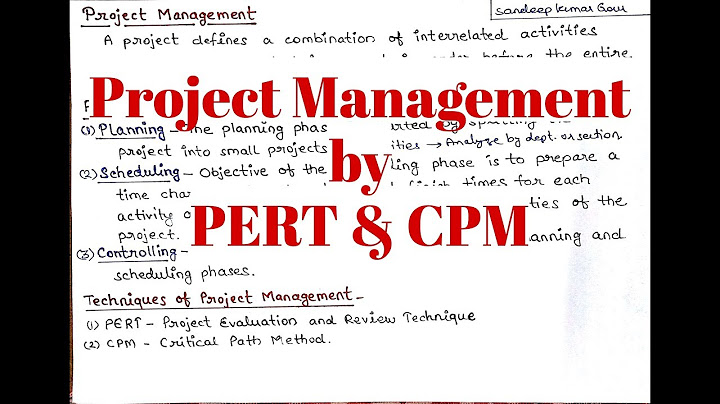 Project Management
Sandeep Kumar Gour
A project defines a combination of interrelated activities
before the entire
Project Management
by
PERT & CPM
(1) Planning - The planning phas
project into small projects
ities → Analyze by dept. or section
(2) Scheduling - Objective of the
ling phase is to prepare a
time char
finish times for each
activity o
ties of the
project.
(3) Controlling -
anning and
scheduling phases.
Techniques of Project Management -
(1) PERT - Project Evaluation and Review Technique
(2) CPM - Critical Path Method.